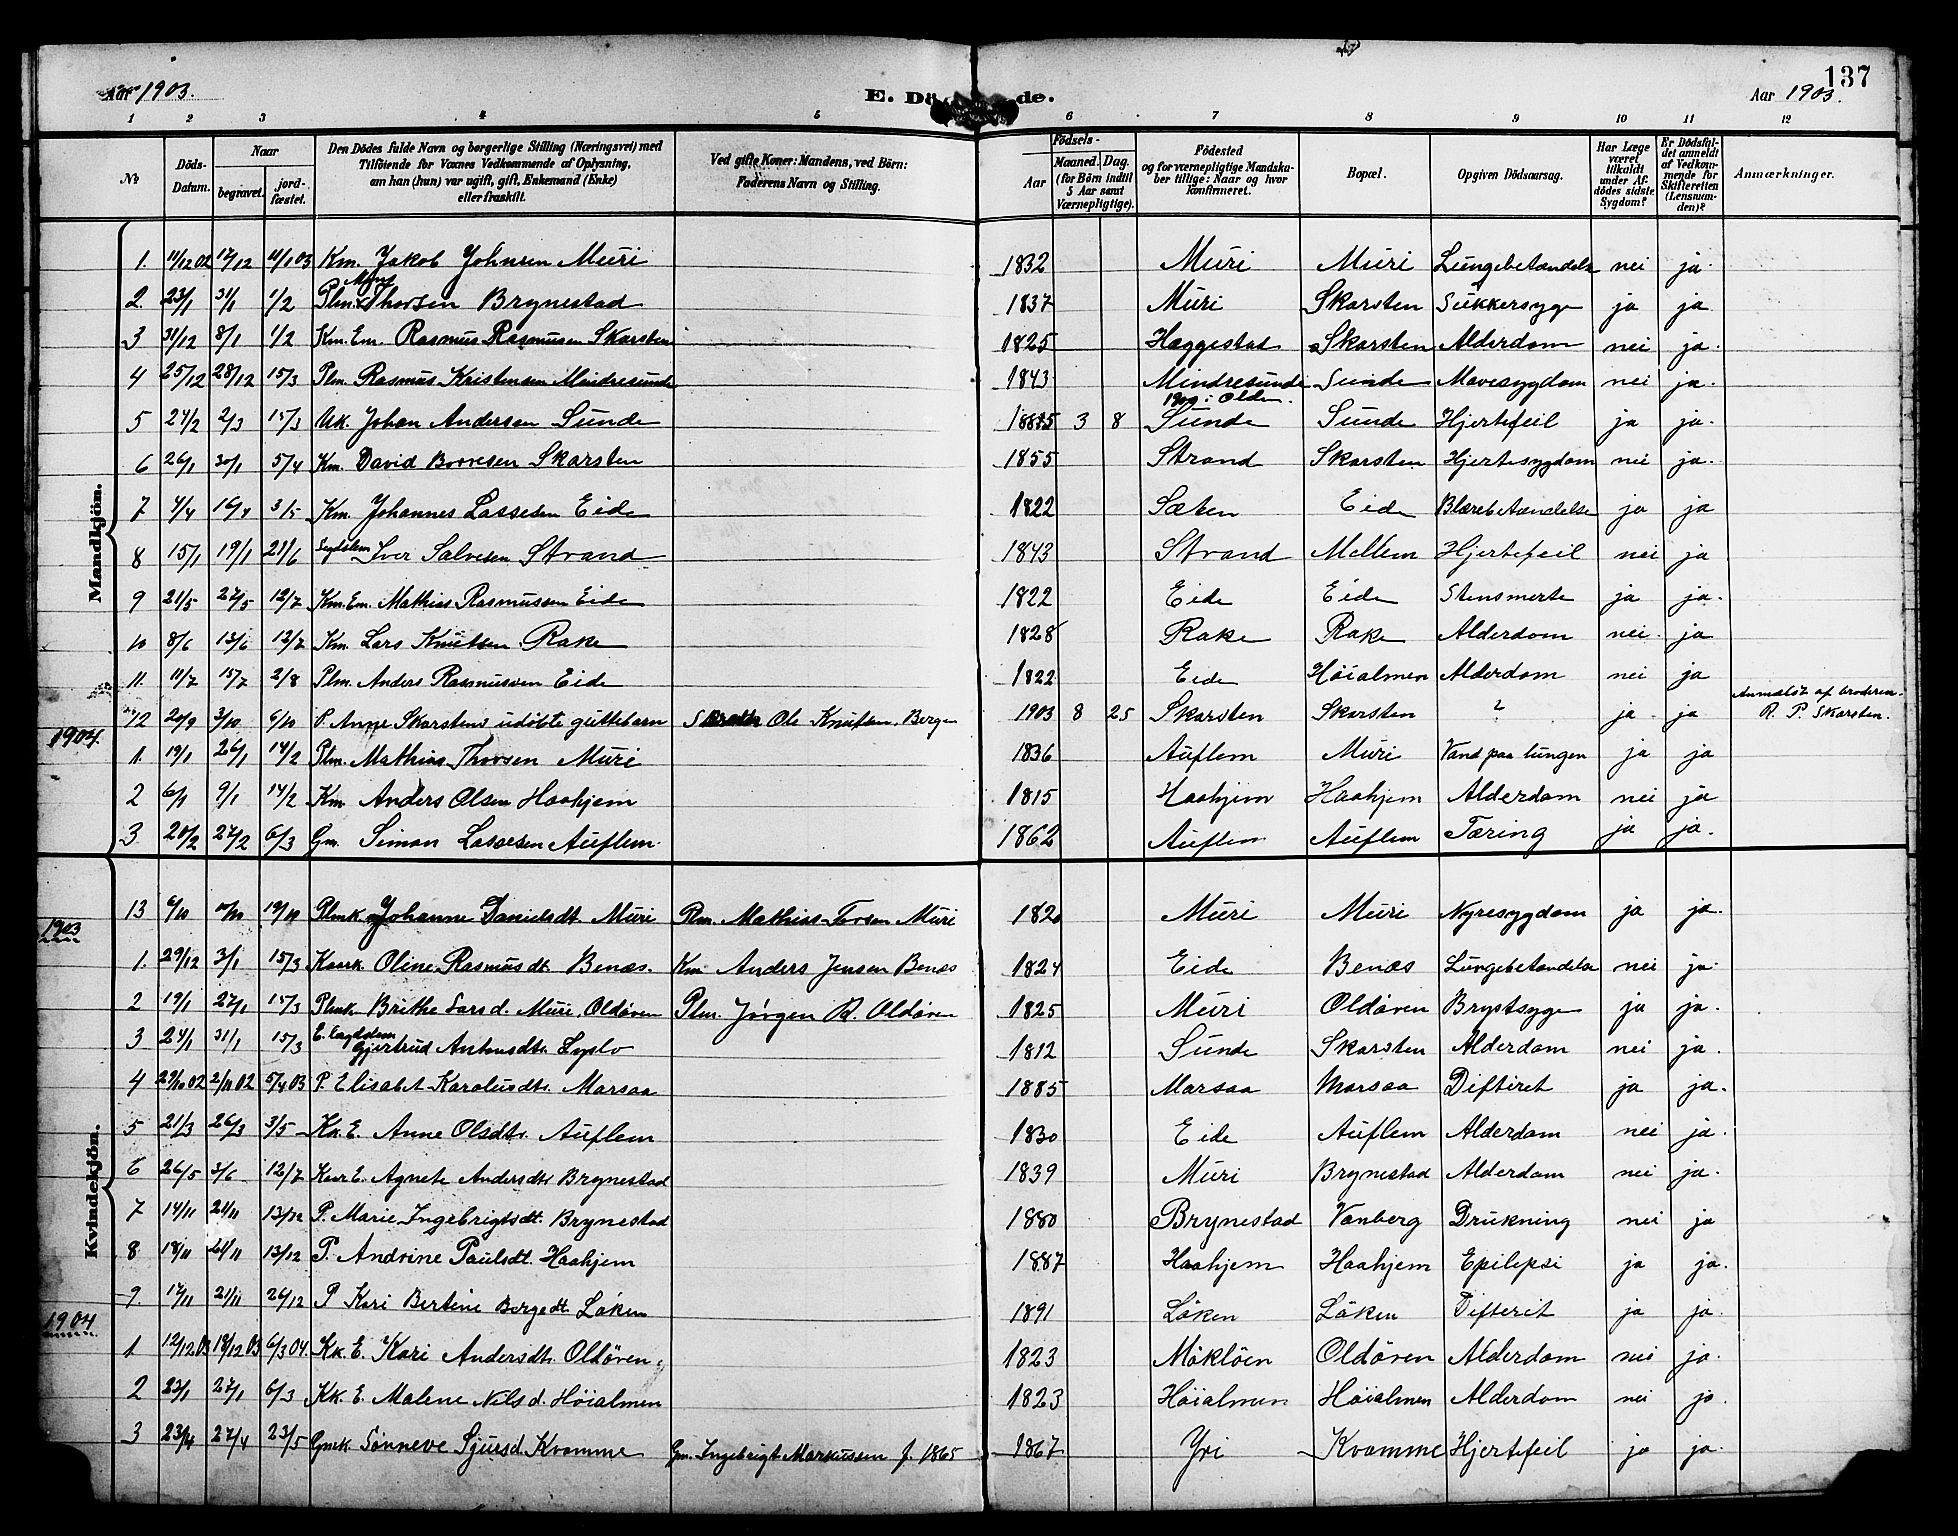 137
Aar 1903. E. Dö de. Aar 1903.
1 2 3 4 5 6 7 8 9 10 11 12
No Döds-Datum. Naar begravet. jord-fæstet. Den Dödes fulde Navn og borgerlige Stilling (Næringsvei) med Tilföiende for Voxnes Vedkommende af Oplysning, om han (hun) var ugift, gift, Enkemand (Enke) eller fraskilt. Ved gifte Koner: Mandens, ved Börn: Faderens Navn og Stilling. Födsels- Aar Maaned. Dag. (for Börn indtil 5 Aar samt Værnepligtige). Födested og for værnepligtige Mandskaber tillige: Naar og hvor konfirmeret. Bopæl. Opgiven Dödsaarsag. Har Læge været tilkaldt under Afdödes sidste Sygdom? Er Dödsfaldet anmeldt af Vedkommende for Skifteretten (Lensmanden)? Anmærkninger.
Mandkjön.
1. 11/12 02 17/12 11/1 03 Km. Jakob Johnsen Muri 1832 Muri Muri Lungebetændelse nei ja.
2. 23/1 31/1 1/2 Plm. Mons Thorsen Brynestad 1837 Muri Skarsten Sukkersyge ja ja
3 31/12 8/1 1/2 Km. Em. Rasmus Rasmusen Skarsten 1825 Haggestad Skarsten Alderdom nei ja.
4 25/12 28/12 15/3 Plm. Rasmus Kristensen Mindresunde 1843 Mindresunde Sunde Mavesygdom nei ja.
5 24/2 2/3 15/3 Uk. Johan Andersen Sunde 1885 3 8 1900 i Olden. Sunde Sunde Hjertefeil ja ja.
6 26/1 30/1 5/4 Km. David Boresen Skarsten 1855 Strand Skarsten Hjertesygdom nei ja.
7 4/4 16/4 3/5 Km. Johannes Lassesen Eide 1822 Sæten Eide Blærebetændelse ja ja
8 15/1 19/1 21/6 Iver Salvesen Strand 1843 Strand Mellem Hjertefeil nei ja
9 21/5 27/5 12/7 Km. Em. Mathias Rasmussen Eide 1822 Eide Eide Stensmerte ja ja.
10 8/6 13/6 12/7 Km. Lars Knutsen Rake 1828 Rake Rake Alderdom nei. ja
11. 11/7 15/7 2/8 Plm. Anders Rasmussen Eide 1822 Eide Höialmen Alderdom nei ja
12 20/9 3/10 6/10 P. Anne Skarstens udöbte guttebarn Ole Knutsen. Bergen 1903 8 25 Skarsten Skarsten ? ja ja Anmeldt af broderen R. P. Skarsten.
1904.
1. 19/1 26/1 14/2 Plm. Mathias Thorsen Muri 1836 Auflem Muri Vand paa lungen ja ja
2 6/1 9/1 14/2 Km Anders Olsen Haahjem 1815 Haahjem Haahjem Alderdom nei ja
3 20/2 27/2 6/3 Gm. Simon Lassesen Auflem. 1862 Auflem Auflem Tæring ja ja.
Kvindekjön.
1903
13 6/10 10/10 19/10 Plmk Johanne Danielsdt. Muri Plm. Mathias Torsen Muri 1820 Muri Muri Nyresygdom ja ja.
1. 29/12 3/1 15/3 Kaark Oline Rasmusdt. Benæs. Km. Anders Jensen Benæs 1824 Eide Benæs Lungebetændelse nei ja.
2 19/1 27/1 15/3 Plmk. Brithe Larsd. Muri, Oldören Plm. Jörgen R. Oldören 1825 Muri Oldören Brystsyge ja ja.
3 24/1 31/1 15/3 E. Gjertrud Antonsdt. Lyslo 1812 Sunde Skarsten Alderdom nei ja.
4 29/10 02 2/11 02 5/4 03 P. Elisabet Karolusdt. Marsaa 1885 Marsaa Marsaa Difterit ja ja.
5 21/3 26/3 3/5 Kk. E. Anne Olsdt. Auflem 1830 Eide Auflem Alderdom nei ja.
6 26/5 3/6 12/7 Kaar E. Agnete Andersdt. Brynestad 1839 Muri Brynestad Alderdom nei ja.
7 14/11 21/11 13/12 P. Marie Ingebrigtsdt. Brynestad 1880 Brynestad Vanberg Drukning nei ja
8 18/11 24/11 13/12 P. Andrine Paulsdt. Haahjem 1887 Haahjem Haahjem Epilepsi ja ja.
9. 17/11 21/11 26/12 P Kari Bertine Borgedt. Löken 1891 Löken Löken Difterit ja ja.
1904
1 12/12 03 18/12 03 6/3 04. Kk. E. Kari Andersdt. Oldören. 1823 Möklöen Oldören Alderdom nei ja.
2 23/1 27/1 6/3 Kk. E. Malene Nilsd. Höialmen 1823 Höialmen Höialmen Alderdom nei ja.
3 23/4 27/4 23/5 Gmk. Sönneve Sjursd. Kvamme Gm. Ingebrigt Markussen f. 1865 1867 Yri Kvamme Hjertefeil ja ja.